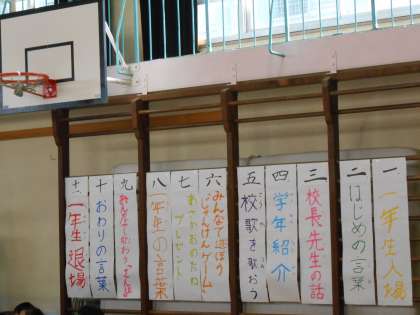 一 一年生入場
二 はじめの言葉
三 校長先生の話
四 学年紹介
五 校歌を歌おう
六 みんなで遊ぼう
じゃんけんゲーム
七 あさがおのたね
プレゼント
八 一年生の言葉
九
十 おわりの言葉
十一 一年生退場